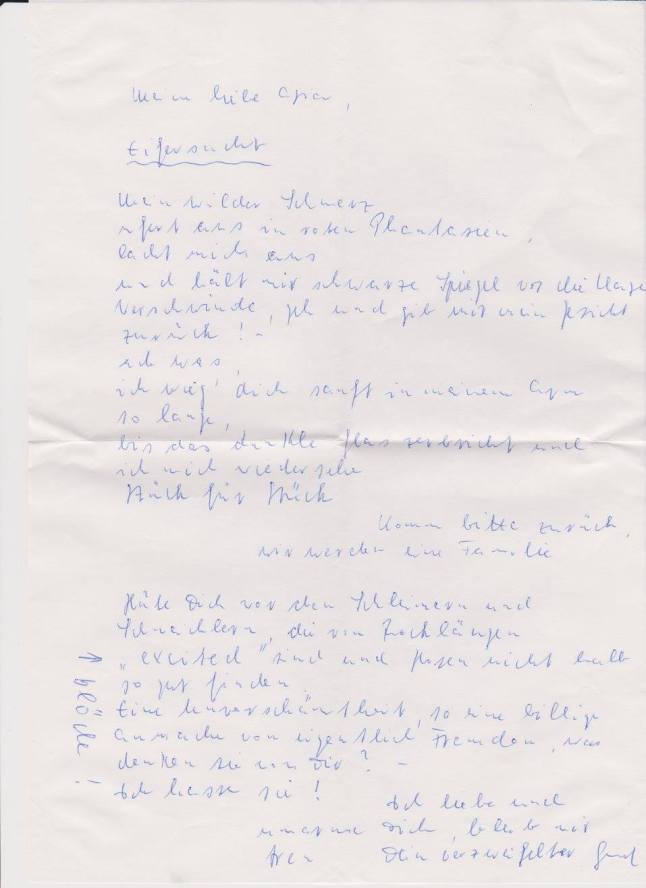 Mein liebe
Eifersucht
Mein wilder Schmerz
ufert aus in roten Phantasien,
lacht mich aus
und hält mir schwarze Spiegel vor die Augen
Verschwinde, geh und gib mir mein Gesicht
zurück! -
ach was,
ich wieg' dich sanft in meinem
so lange,
bis das dunkle Glas zerbricht und
ich mich wiedersehe
Stück für Stück
Komm bitte zurück,
wir werden eine Familie
Hüte Dich vor den Schleimern und
die von Rocklängen
"excited" sind und Hosen nicht halb
so gut finden
Eine Unverschämtheit, so eine billige
Anmache von eigentlich Fremden, was
denken sie von Dir? -
Ich hasse sie!
↑ blöde!
Ich liebe und
umarme Dich, bleib mir
treu Dein verzweifelter